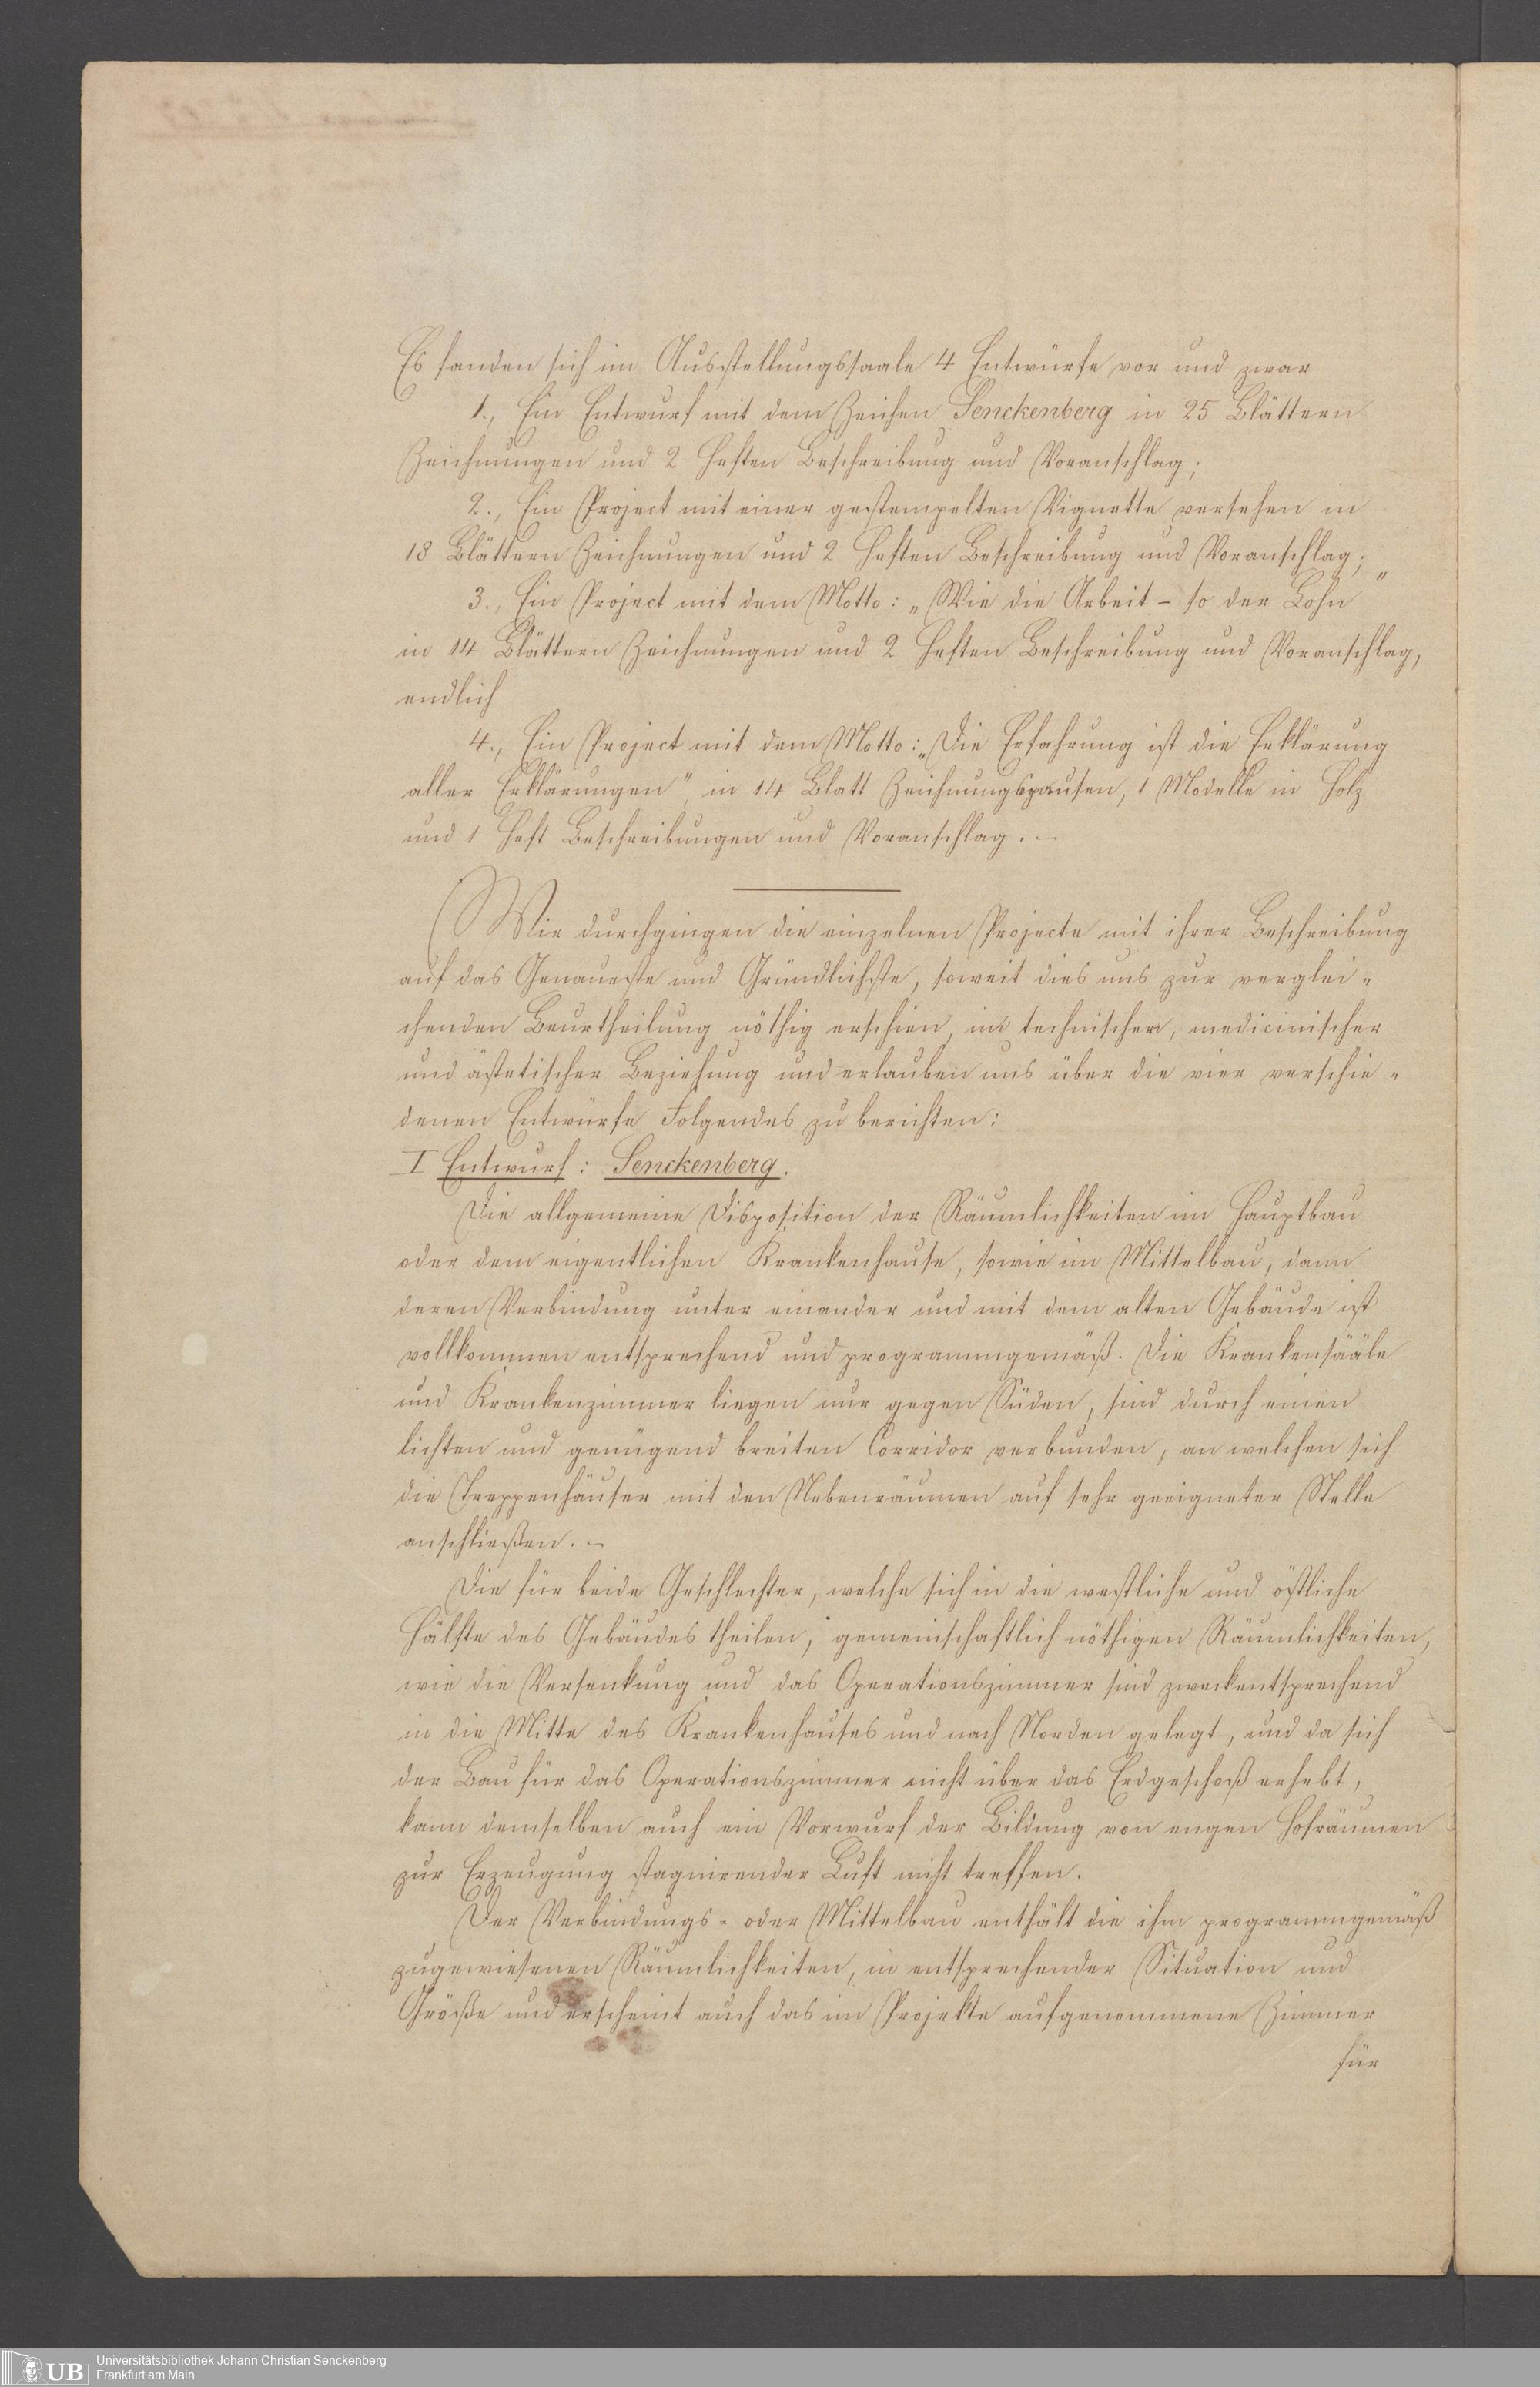 Es fanden sich im Ausstellungssaale 4 Entwürfe vor und zwar
1., Ein Entwurf mit dem Zeichen Senckenberg in 25 Blättern
Zeichnungen und 2 Heften Beschreibung und Voranschlag;
2., Ein Project mit einer gestempelten Vignette versehen in
18 Blättern Zeichnungen und 2 Heften Beschreibung und Voranschlag;
3., Ein Project mit dem Motto: „Wie die Arbeit - so der Lohn"
in 14 Blättern Zeichnungen und 2 Heften Beschreibung und Voranschlag,
endlich
4., Ein Project mit dem Motto: „Die Erfahrung ist die Erklärung
aller Erklärungen", in 14 Blatt Zeichnungspausen, 1 Modelle in Holz
und 1 Heft Beschreibungen und Voranschlag. -
Wir durchgingen die einzelnen Projecte mit ihrer Beschreibung
auf das Genaueste und Gründlichste, soweit dies uns zur verglei-
chenden Beurtheilung nöthig erschien, in technischer, medicinischer
und ästetischer Beziehung und erlauben uns über die vier verschie-
denen Entwürfe Folgendes zu berichten:
I Entwurf: Senckenberg.
Die allgemeine Disposition der Räumlichkeiten im Hauptbau
oder dem eigentlichen Krankenhause, sowie im Mittelbau, dann
deren Verbindung unter einander und mit dem alten Gebäude ist
vollkommen entsprechend und programmgemäß. Die Krankensääle
und Krankenzimmer liegen nur gegen Süden, sind durch einen
lichten und genügend breiten Corridor verbunden, an welchen sich
die Treppenhäuser mit den Nebenräumen auf sehr geeigneter Stelle
anschließen. -
Die für beide Geschlechter, welche sich in die westliche und östliche
Hälfte des Gebäudes theilen, gemeinschaftlich nöthigen Räumlichkeiten,
wie die Versenkung und das Operationszimmer sind zweckentsprechend
in die Mitte des Krankenhauses und nach Norden gelegt, und da sich
der Bau für das Operationszimmer nicht über das Erdgeschoß erhebt,
kann demselben auch ein Vorwurf der Bildung von engen Hofräumen
zur Erzeugung stagnirender Luft nicht treffen.
Der Verbindungs- oder Mittelbau enthält die ihm programmgemäß
zugewiesenen Räumlichkeiten, in entsprechender Situation und
Größe und erscheint auch das im Projekte aufgenommene Zimmer
für
UB Universitätsbibliothek Johann Christian Senckenberg
Frankfurt am Main